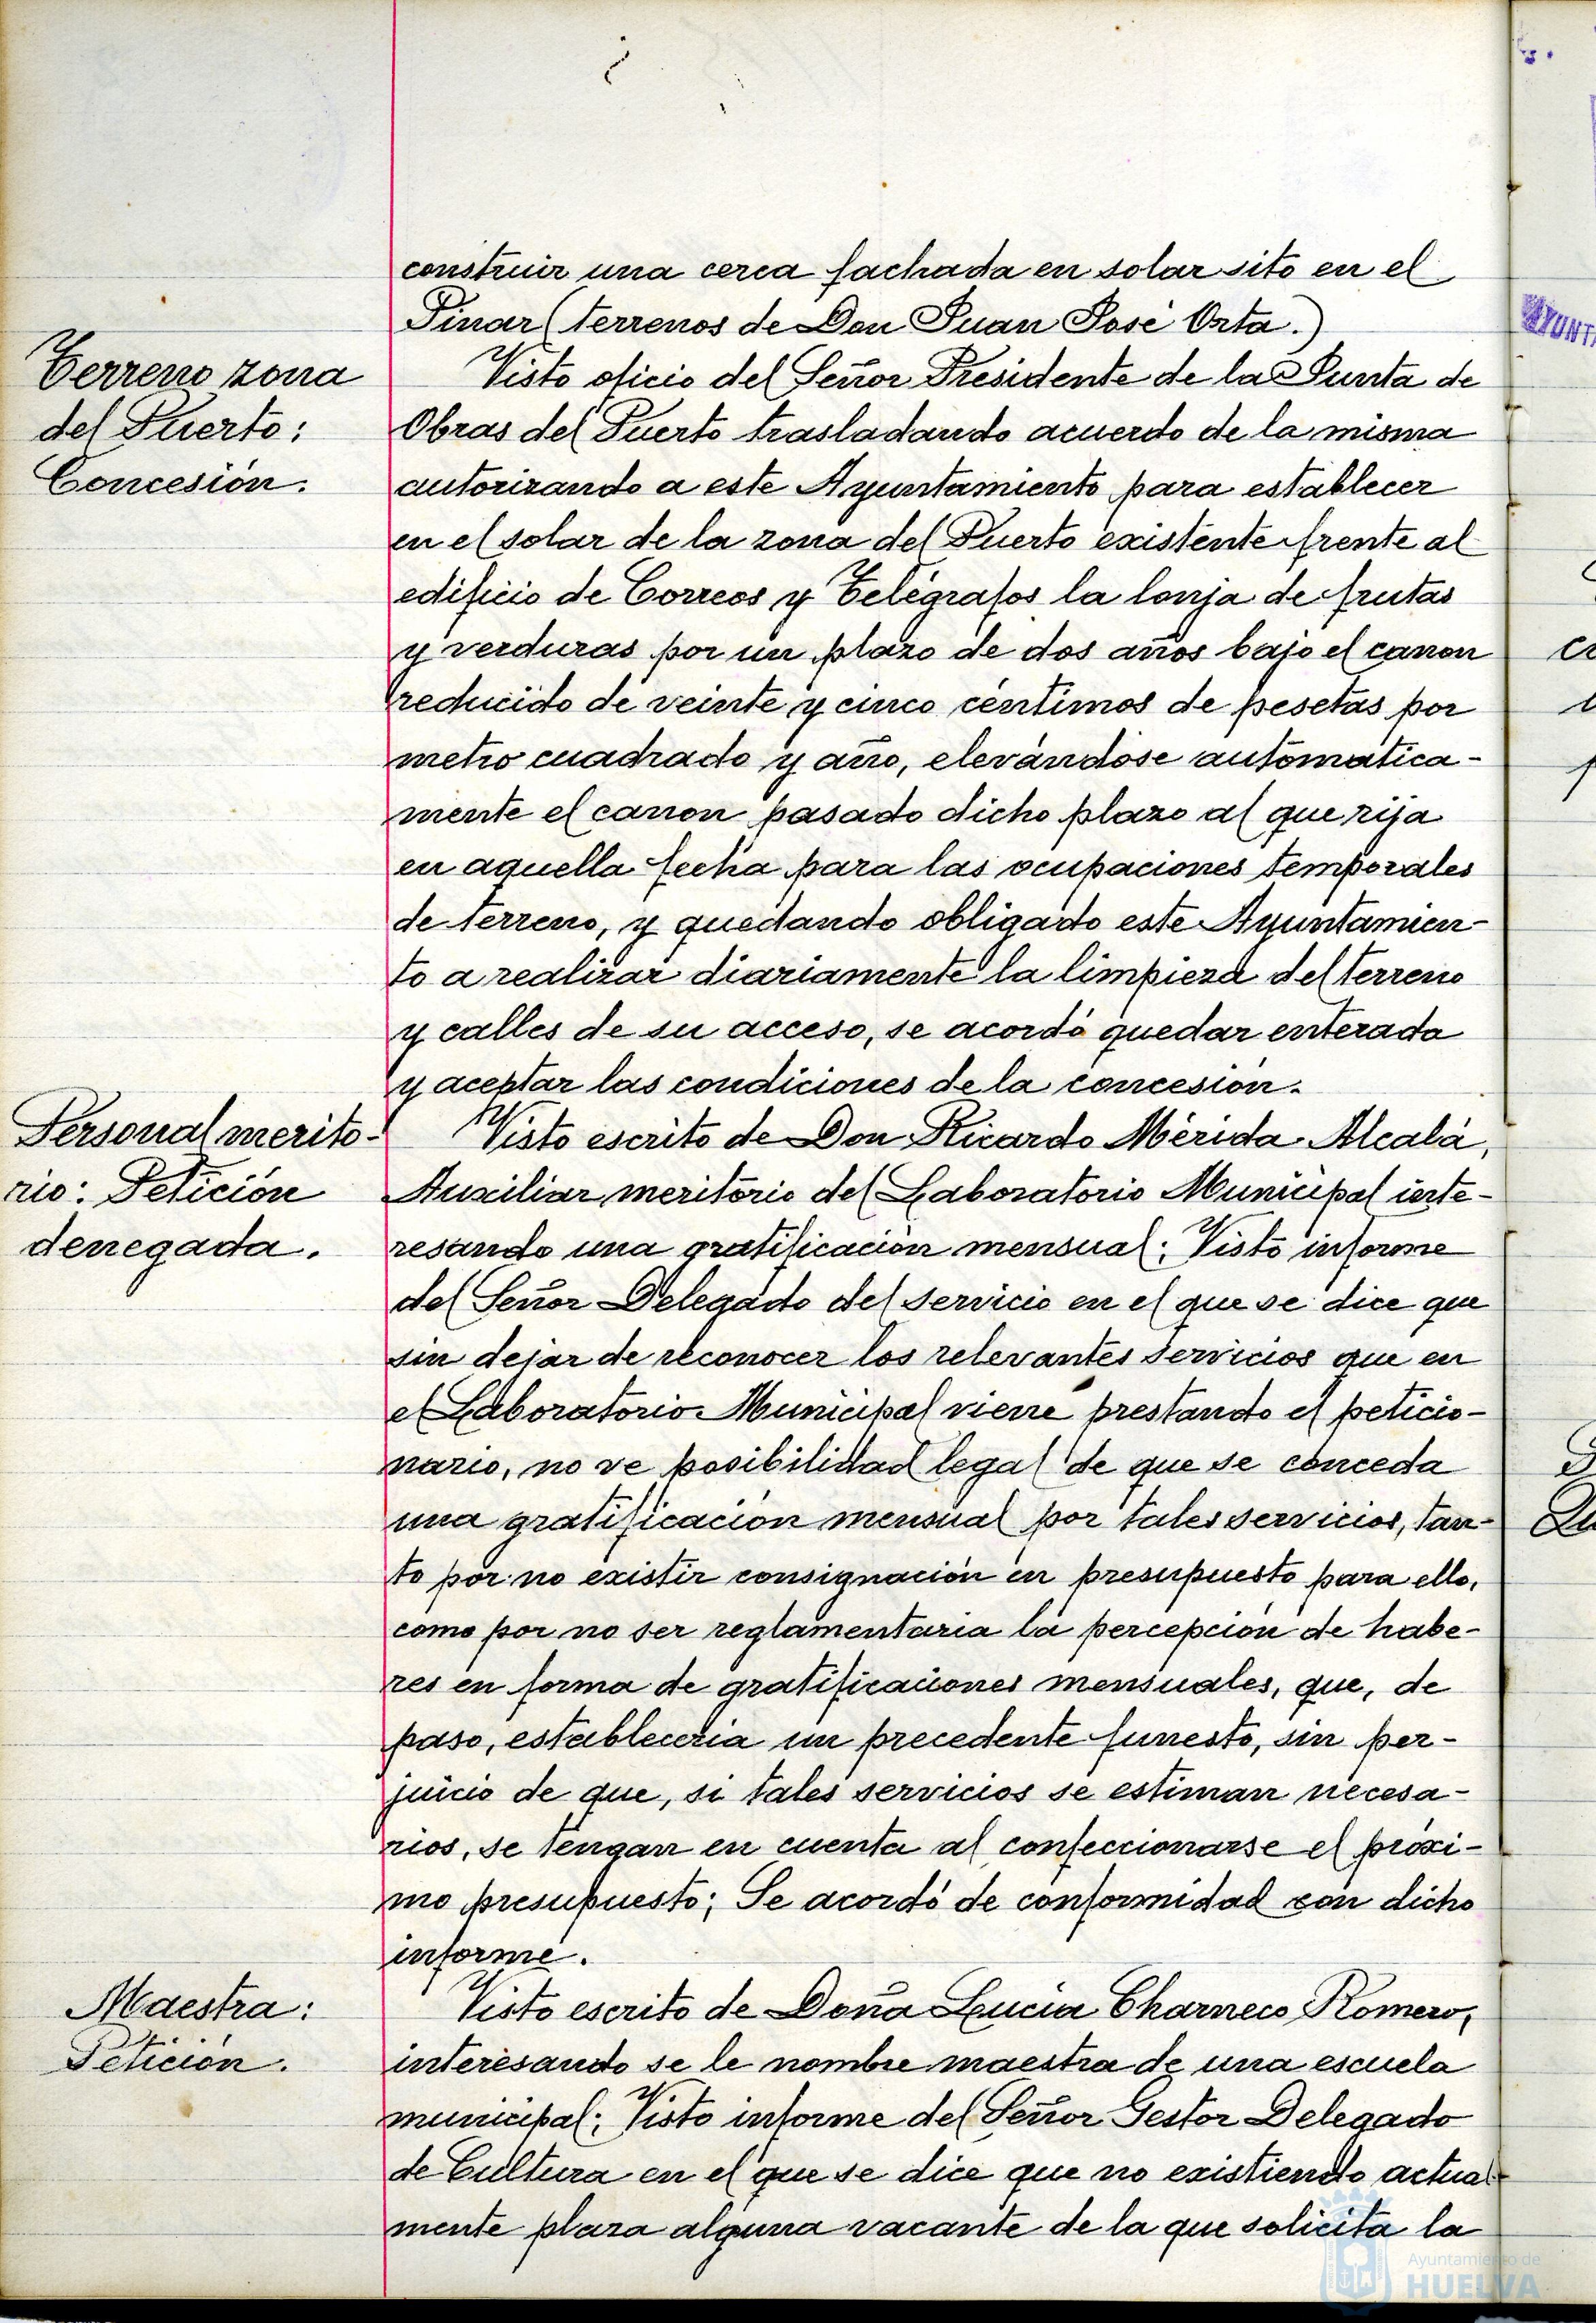 construir una cerca fachada en solar sito en el
Pinar (terrenos de Don Juan José Orta.)
Terreno zona
del Puerto:
Concesión.
Visto oficio del Señor Presidente de la Junta de
Obras del Puerto trasladando acuerdo de la misma
autorizando a este Ayuntamiento para establecer
en el solar de la zona del Puerto existente frente al
edificio de Correos y Telégrafos la lonja de frutas
y verduras por un plazo de dos años bajo el canon
reducido de veinte y cinco céntimos de pesetas por
metro cuadrado y año, elevándose automática-
mente el canon pasado dicho plazo al que rija
en aquella fecha para las ocupaciones temporales
de terreno, y quedando obligado este Ayuntamien-
to a realizar diariamente la limpieza del terreno
y calles de su acceso, se acordó quedar enterada
y aceptar las condiciones de la concesión.
Personal merito-
rio: Petición
denegada.
Visto escrito de Don Ricardo Mérida Alcalá,
Auxiliar meritorio del Laboratorio Municipal inte-
resando una gratificación mensual; Visto informe
del Señor Delegado del servicio en el que se dice que
sin dejar de reconocer los relevantes servicios que en
el Laboratorio Municipal viene prestando el peticio-
nario, no ve posibilidad legal de que se conceda
una gratificación mensual por tales servicios, tan-
to por no existir consignación en presupuesto para ello,
como por no ser reglamentaria la percepción de habe-
res en forma de gratificaciones mensuales, que, de
paso, establecería un precedente funesto, sin per-
juicio de que, si tales servicios se estiman necesa-
rios, se tengan en cuenta al confeccionarse el próxi-
mo presupuesto; Se acordó de conformidad con dicho
informe.
Maestra:
Petición.
Visto escrito de Doña Lucía Charneco Romero,
interesando se le nombre maestra de una escuela
municipal; Visto informe del Señor Gestor Delegado
de Cultura en el que se dice que no existiendo actual
mente plaza alguna vacante de la que solicita la
Ayuntamiento de
HUELVA